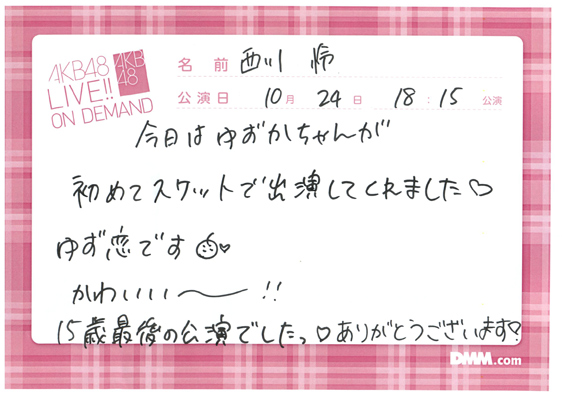 AKB48
LIVE!!
ON DEMAND
AKB
48
名前 西川 怜
公演日 10月 24日 18:15 公演
今日はゆずかちゃんが
初めてスケットで出演してくれました♡
ゆず恋です
かわいいい〜!!
15歳最後の公演でしたっ♡ありがとうございます♡
DMM.com